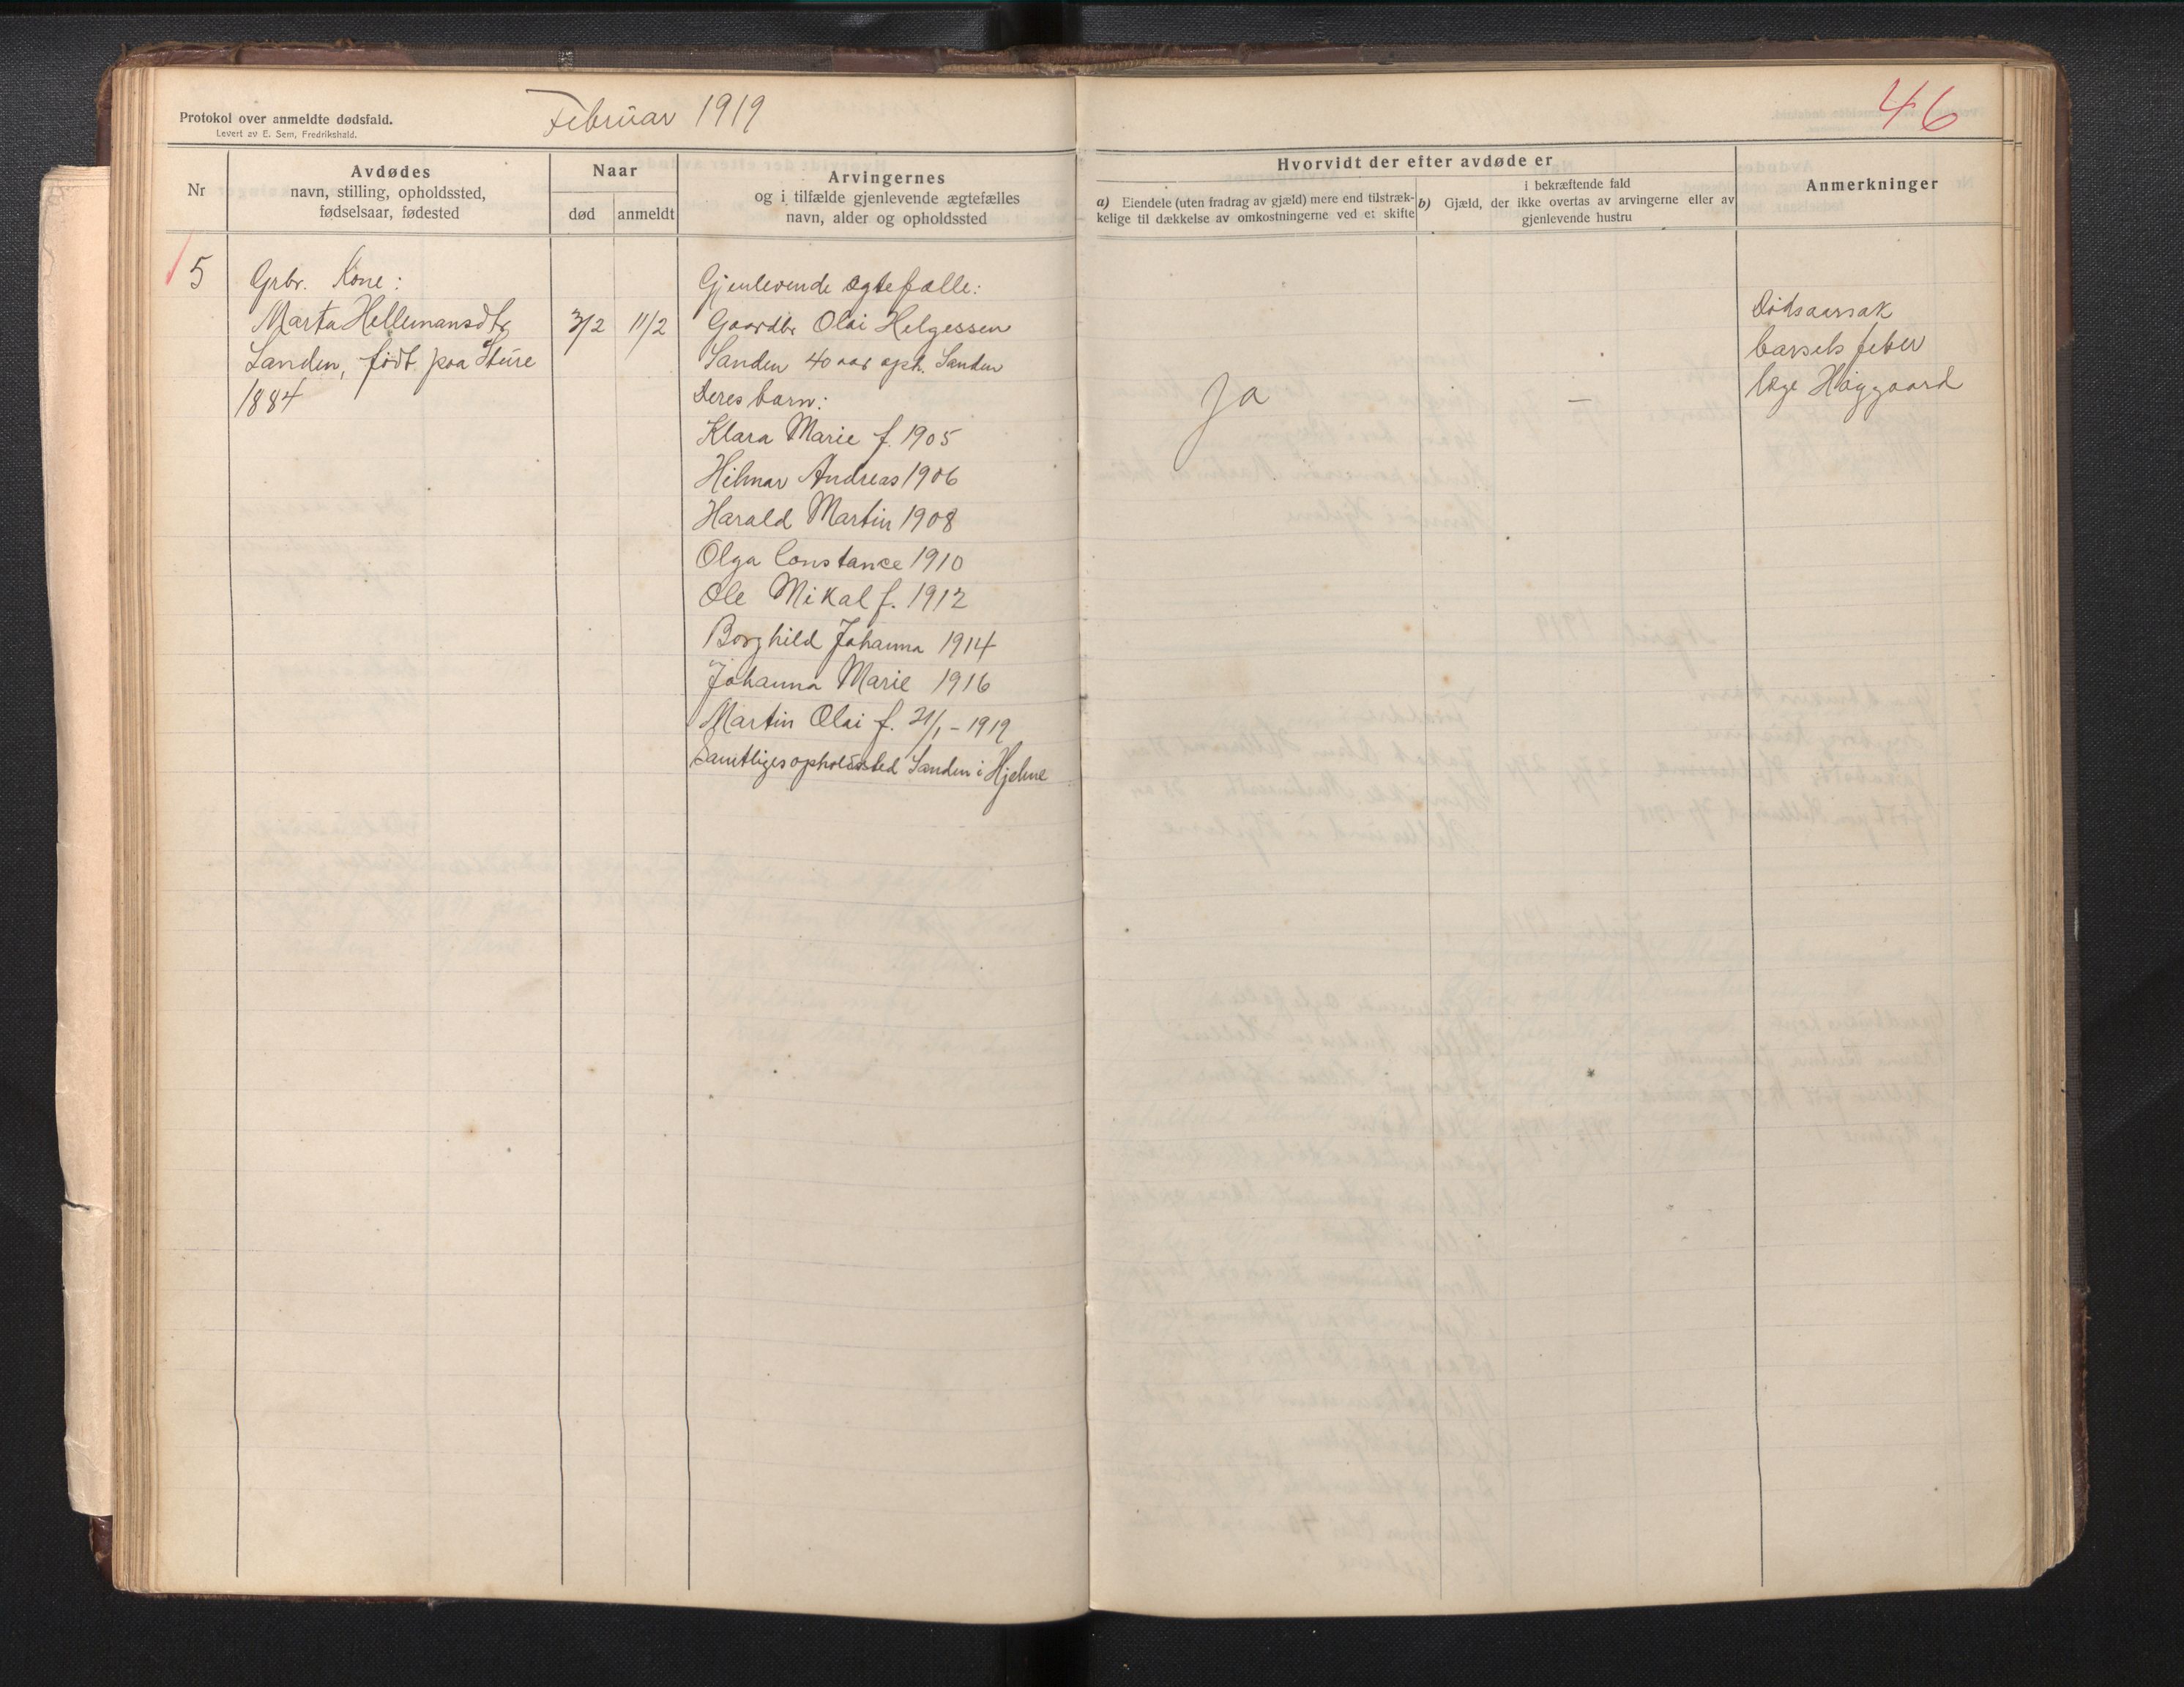 Protokol over anmeldte dødsfald.
Levert av E. Sem, Fredrikshald.
Februar 1919
46
Nr
Avdødes
navn, stilling, opholdssted,
fødselsaar, fødested
Naar
død
anmeldt
Arvingernes
og i tilfælde gjenlevende ægtefælles
navn, alder og opholdssted
Hvorvidt der efter avdøde er
a) Eiendele (uten fradrag av gjæld) mere end tilstræk-
kelige til dækkelse av omkostningerne ved et skifte
i bekræftende fald
b) Gjæld, der ikke overtas av arvingerne eller av
gjenlevende hustru
Anmerkninger
5
Grbr. Kone:
Marta Hellemansdtr
Sanden, født paa Sture
1884
3/2
11/2
Gjenlevende ægtefælle:
Gaardbr Olai Helgessen
Sanden 40 aar oph. Sanden
Deres barn:
Klara Marie f. 1905
Hilmar Andreas 1906
Harald Martin 1908
Olga Constance 1910
Ole Mikal f. 1912
Borghild Johanna 1914
Johanna Marie 1916
Martin Olai f. 21/1 - 1919
Samtliges opholdssted Sanden i Hjelme
Ja
—
Dødsaarsak
barsels feber
læge Haggaard